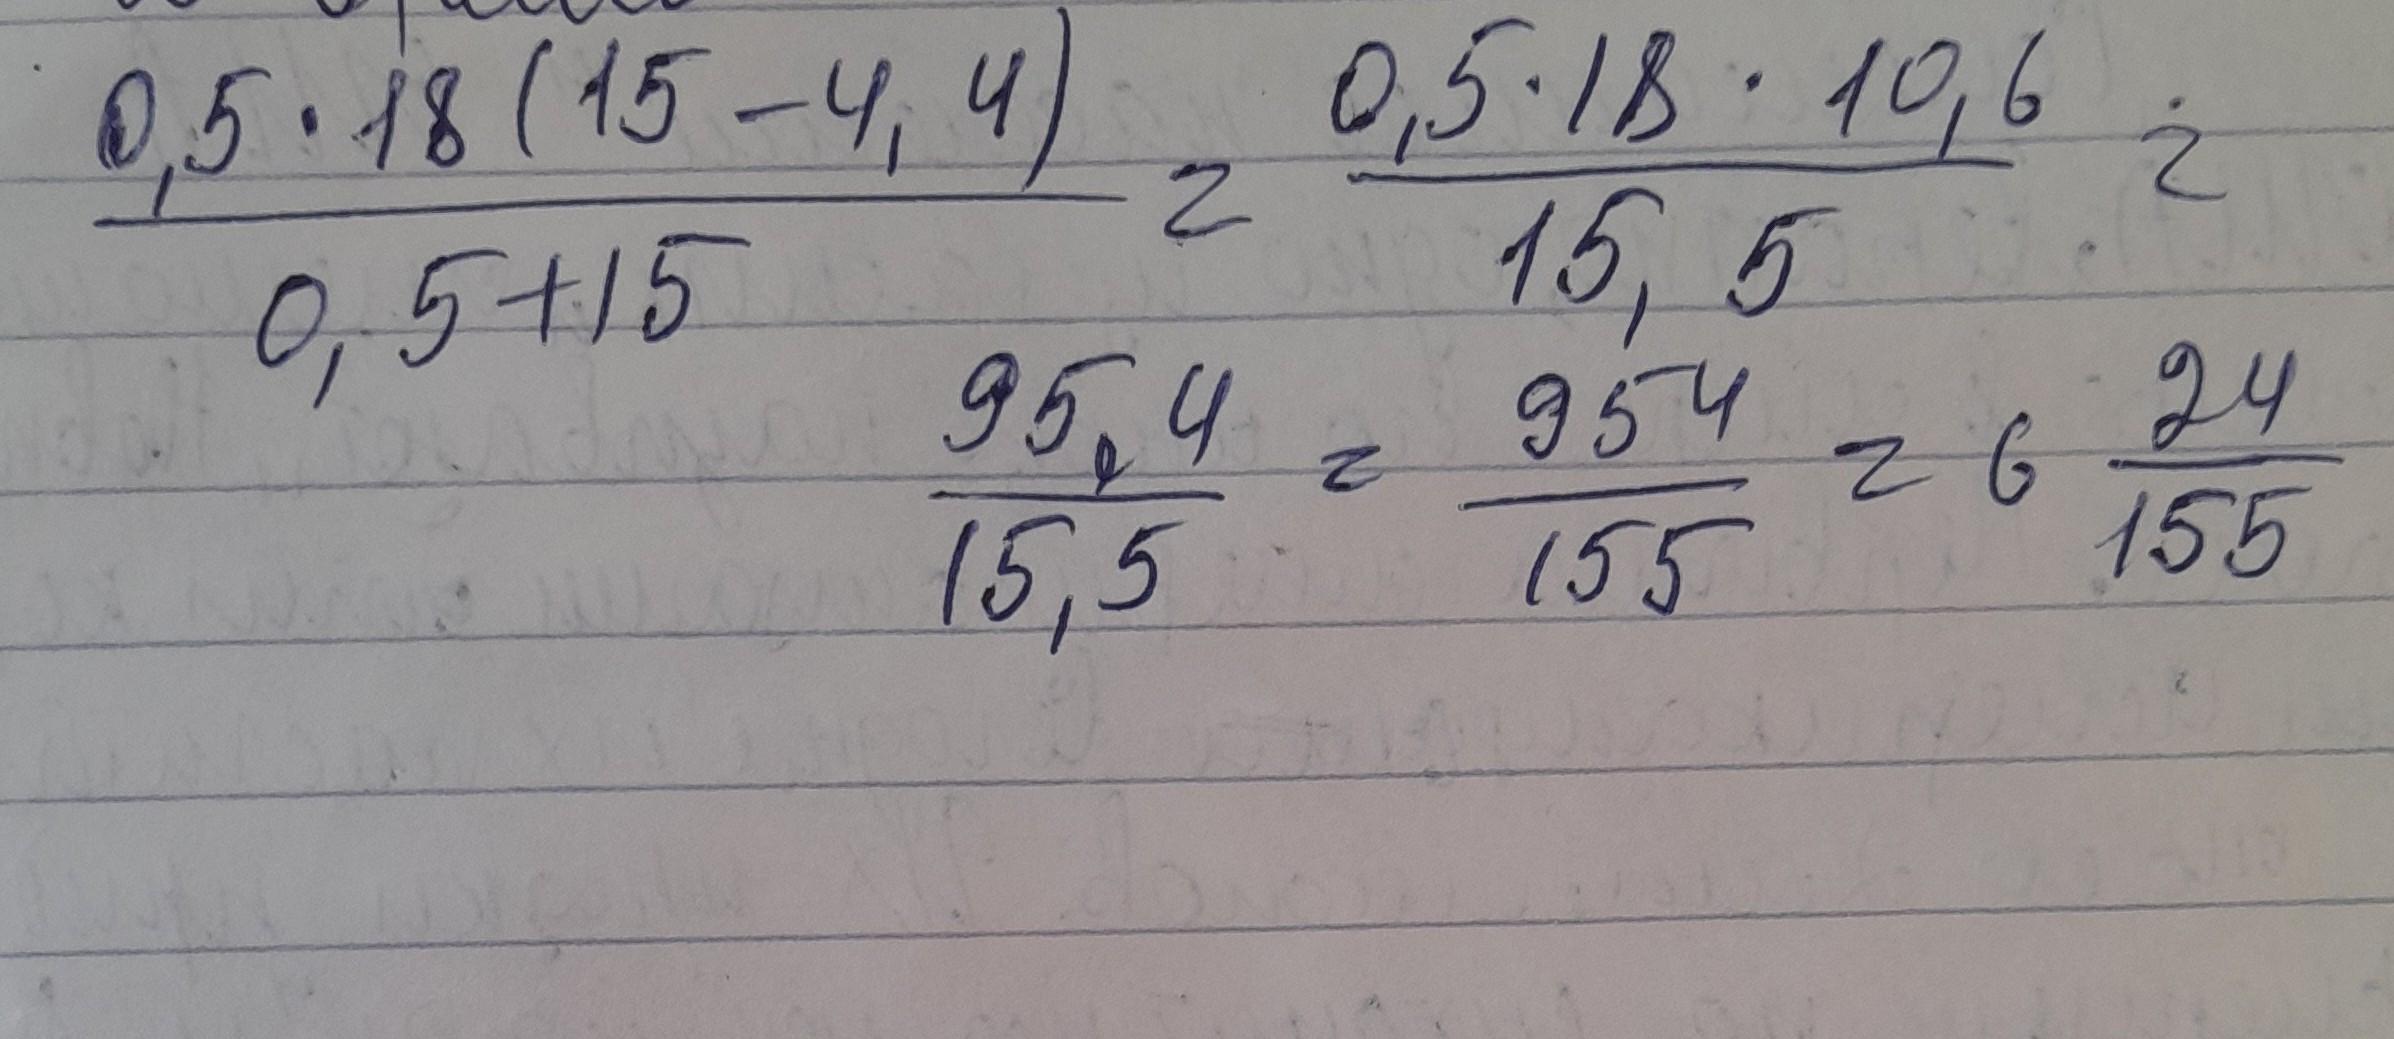 0,5 · 18 (15 - 4,4) / 0,5 + 15 = 0,5 · 18 · 10,6 / 15,5 =
95,4 / 15,5 = 954 / 155 = 6 24/155